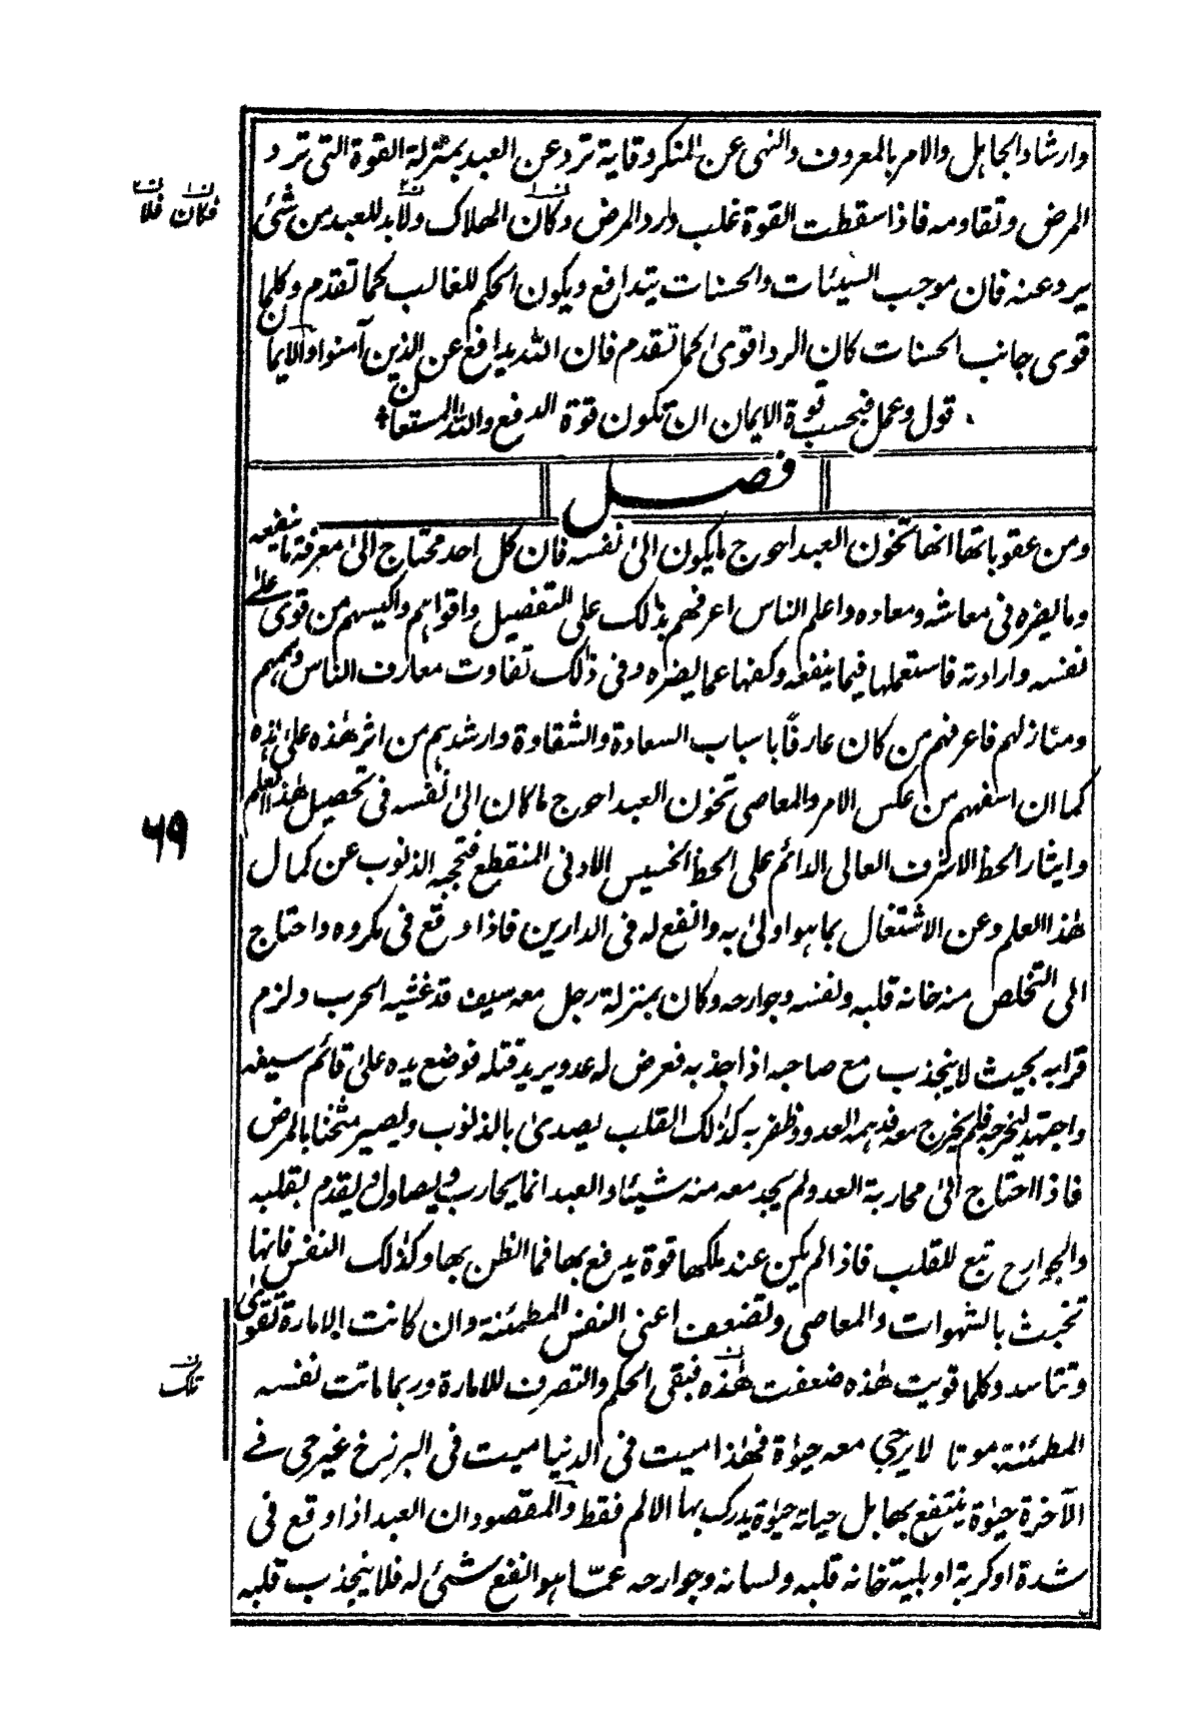 وارشاد الجاهل والامر بالمعروف والنهى عن المنكر وقاية ترد عن العبد بمنزلة القوة التى ترد
المرض وتقاومه فاذا سقطت القوة غلب وارد المرض وكان الهلاك ولابد للعبد من شئ
ن١ فكان ن٢ فلا
يرد عنه فان موجب السيئات والحسنات يتدافع ويكون الحكم للغالب كما تقدم وكلما
قوى جانب الحسنات كان الرد اقوى كما تقدم فان الله يدافع عن الذين آمنوا والايمان
قول وعمل فبحسب قوة الايمان تكون قوة الدفع والله المستعان
فصل
ومن عقوباتها انها تخون العبد احوج ما يكون الى نفسه فان كل احد محتاج الى معرفة ما ينفعه
وما يضره فى معاشه ومعاده واعلم الناس اعرفهم بذالك على التفصيل واقواهم واكيسهم من قوى على
نفسه وارادته فاستعملها فيما ينفعه وكفها عما يضره وفى ذلك تفاوت معارف الناس وهممهم
ومنازلهم فاعرفهم من كان عارفًا باسباب السعادة والشقاوة وارشدهم من اثر هذه على هذه
كما ان اسفههم من عكس الامر والمعاصى تخون العبد احوج ما كان الى نفسه فى تحصيل هذا العلم
٦٩
وايثار الحظ الاشرف العالى الدائم على الحظ الخسيس الادنى المنقطع فتحجبه الذنوب عن كمال
هذا العلم وعن الاشتغال بما هو اولى به وانفع له فى الدارين فاذا وقع فى مكروه واحتاج
الى التخلص منه خانه قلبه ونفسه وجوارحه وكان بمنزلة رجل معه سيف قد غشيه الجرب ولزم
قرابه بحيث لا ينجذب مع صاحبه اذا جذبه فعرض له عدو يريد قتله فوضع يده على قائم سيفه
واجتهد ليخرجه فلم يخرج معه فدهمه العدو وظفر به كذلك القلب يصدى بالذنوب ويصير مثخنا بالمرض
فاذا احتاج الى محاربة العدو لم يجد معه منه شيئا والعبد انما يحارب ويصاول ويقدم بقلبه
والجوارح تبع للقلب فاذا لم يكن عند ملكها قوة يدفع بها فما الظن بها وكذلك النفس فانها
تخبث بالشهوات والمعاصى وتضعف اعنى النفس المطمئنة وان كانت الامارة تقوى
وتتاسد وكلما قويت هذه ضعفت هذه فبقى الحكم والتصرف للامارة وربما ماتت نفسه
ن تلك
المطمئنة موتا لا يرجى معه حيوة فهذا ميت فى الدنيا ميت فى البرزخ غير حى فى
الآخرة حيوة ينتفع بها بل حياته حيوة يدرك بها الالم فقط والمقصود ان العبد اذا وقع فى
شدة او كربة او بلية خانه قلبه ولسانه وجوارحه عما هو انفع شئ له فلا ينجذب قلبه